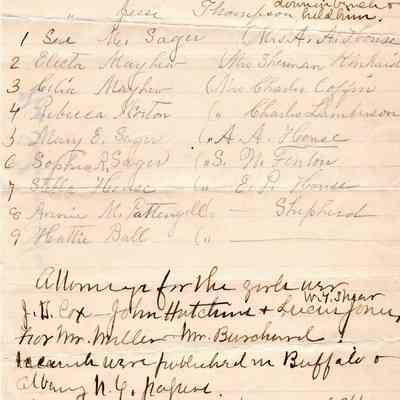 " Jesse Thompson
held him.
1 Sue M. Sager (Mrs. A. A. House
2 Electa Mayhew (Mrs Sherman Kinkaid
3 Celia Mayhew (Mrs Charles Coffin
4 Rebecca Norton (" Charles Lamberson
5 Mary E. Sager (" A. A. House
6 Sophia R. Sager (" S. M. Fenton
7 Stella House (" E. P. House
8 Annie M. Pattengill (" — Shepherd
9 Hattie Ball (" —
Attorneys for the girls wer
W. Y. Shear
J. H. Cox — John Hutchins & Lucius Jones,
for Mr. Miller — Mr. Burchard.
were published in Buffalo &
Albany N. Y. papers.